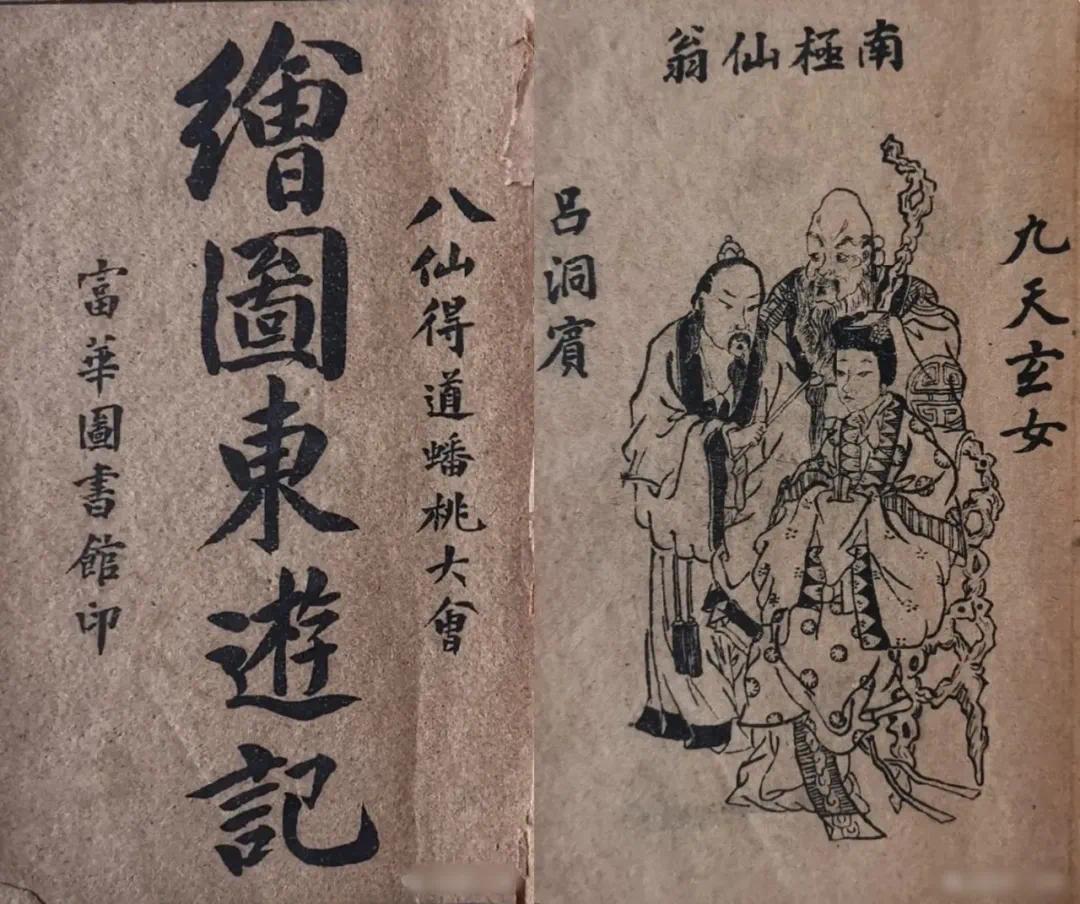 八仙得道蟠桃大會
繪圖東遊記
富華圖書館印
南極仙翁
九天玄女
呂洞賓